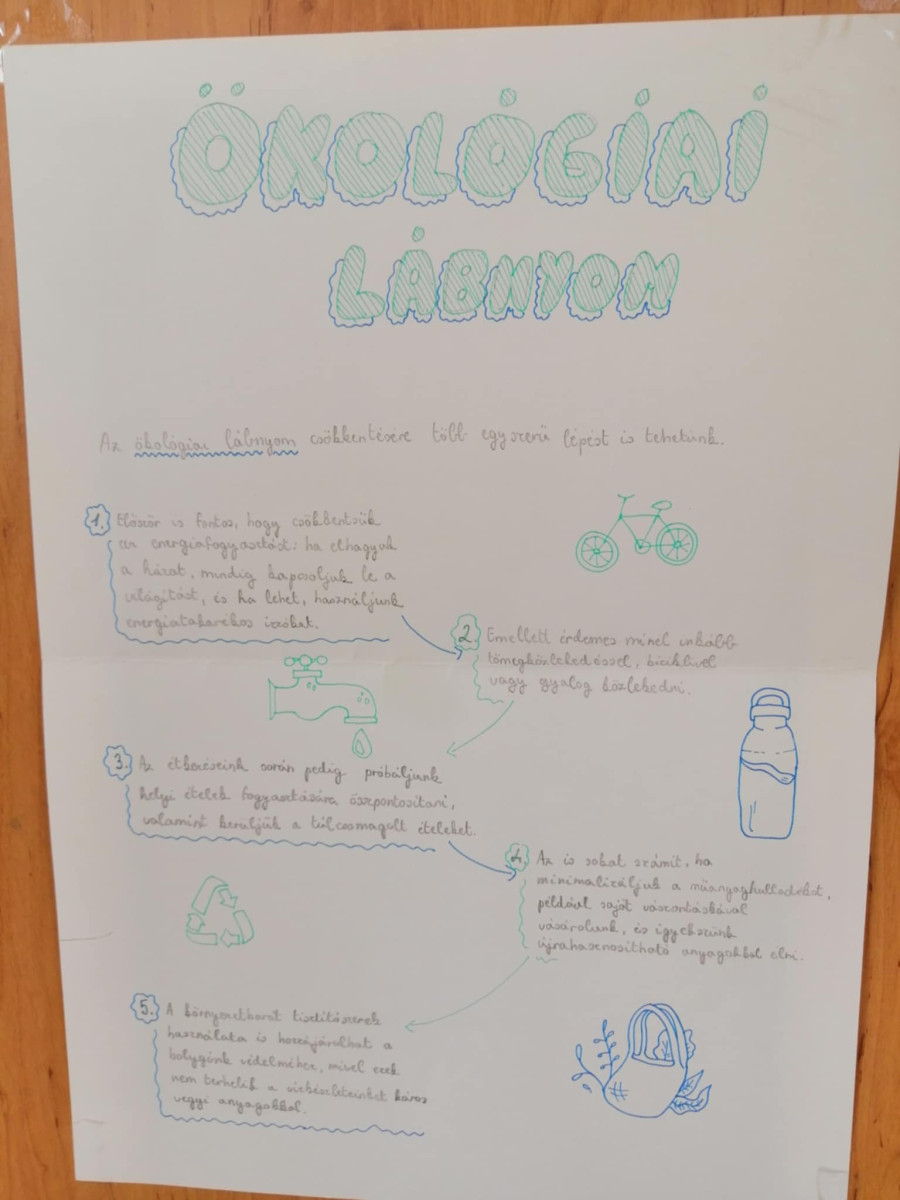 ÖKOLÓGIAI
LÁBNYOM
Az ökológiai lábnyom csökkentésére több egyszerű lépést is tehetünk.
1. Először is fontos, hogy csökkentsük
az energiafogyasztást: ha elhagyjuk
a házat, mindig kapcsoljuk le a
világítást, és ha lehet, használjunk
energiatakarékos izzókat.
2. Emellett érdemes minél inkább
tömegközlekedéssel, biciklivel
vagy gyalog közlekedni.
3. Az étkezéseink során pedig próbáljunk
helyi ételek fogyasztására összpontosítani,
valamint kerüljük a túlcsomagolt ételeket.
4. Az is sokat számít, ha
minimalizáljuk a műanyaghulladékot,
például saját vászontáskával
vásárolunk, és igyekszünk
újrahasznosítható anyagokból élni.
5. A környezetbarát tisztítószerek
használata is hozzájárulhat a
bolygónk védelméhez, mivel ezek
nem terhelik a vízkészleteinket káros
vegyi anyagokkal.